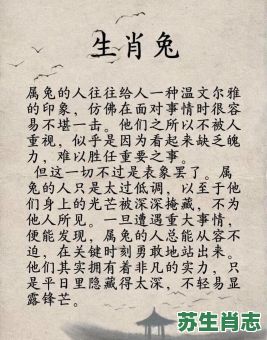 生肖兔
属兔的人往往给人一种温文尔雅
的印象，仿佛在面对事情时很容
易不堪一击。他们之所以不被人
重视，似乎是因为看起来缺乏魄
力，难以胜任重要之事。
但这一切不过是表象罢了。属
兔的人只是太过低调，以至于他
们身上的光芒被深深掩藏，不为
他人所见。一旦遭遇重大事情，
便能发现，属兔的人总能从容不
迫，在关键时刻勇敢地站出来。
他们其实拥有着非凡的实力，只
是平日里隐藏得太深，不轻易显
露锋芒。
苏生肖志